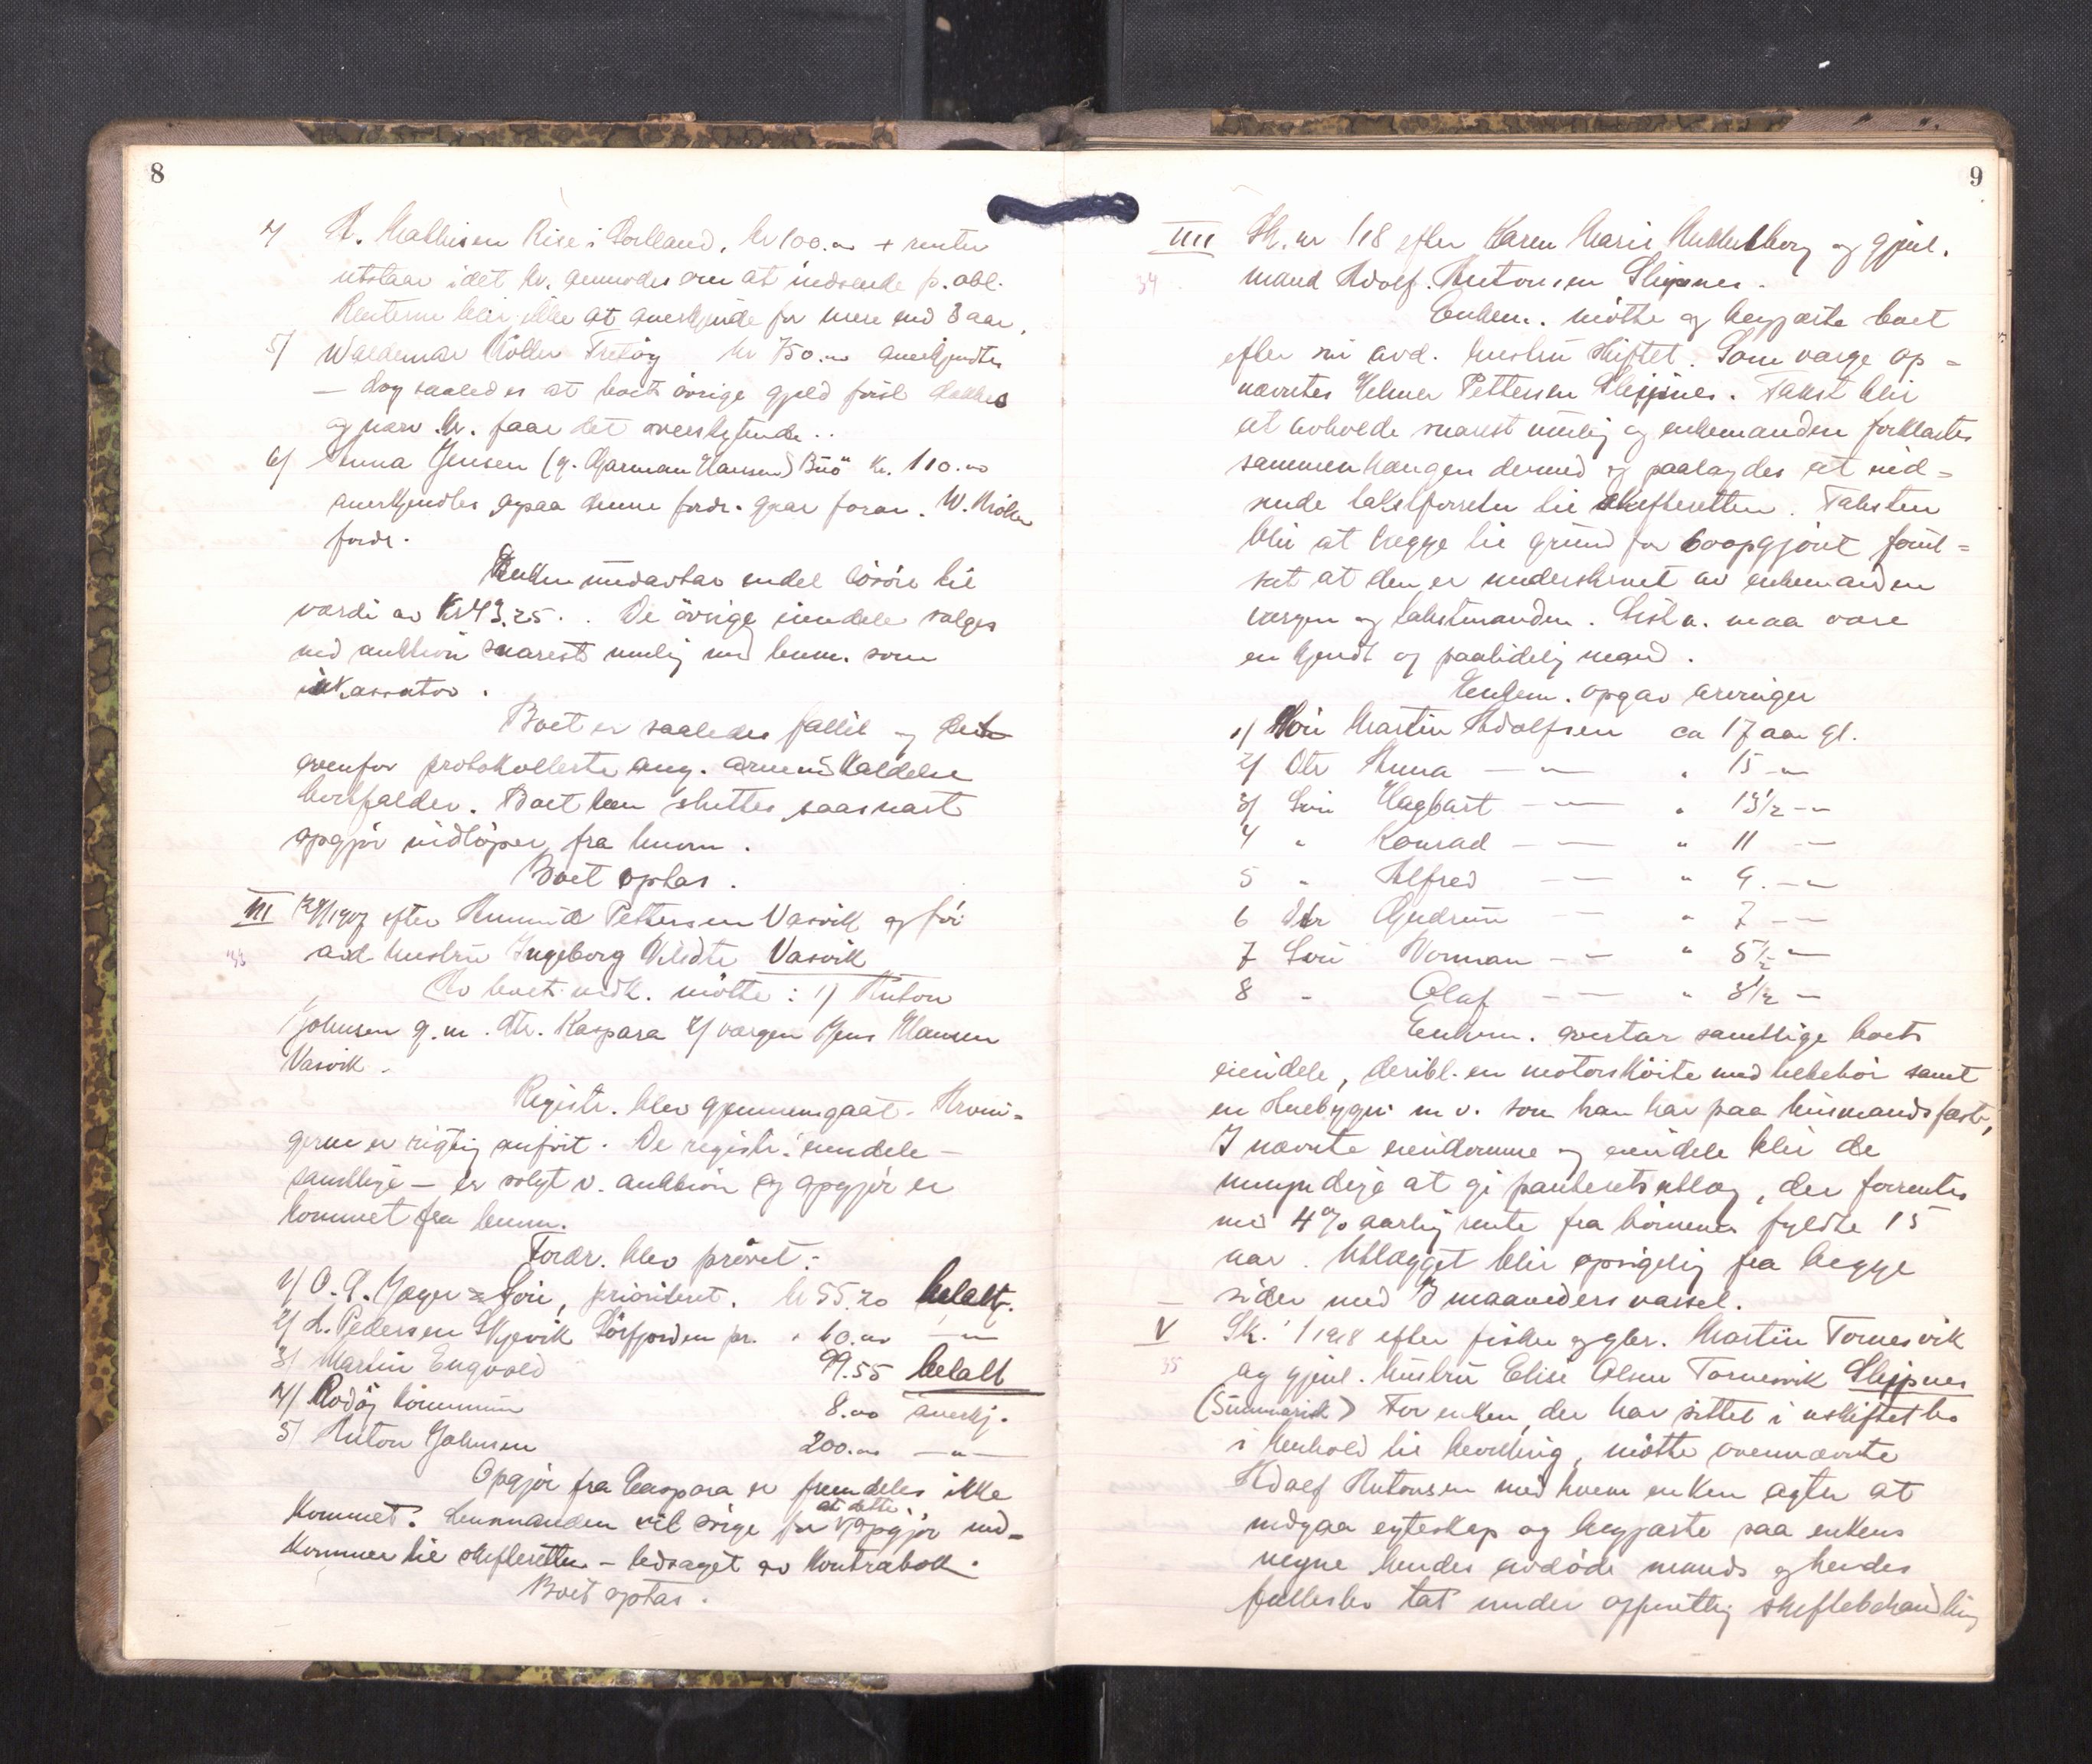 8
4/ A. Mathisen Rise i Lolland. kr 100.00 + renter
utstaar idet kr. anmodes om at indsende p. obl.
Renterne blir ikke at anerkjende for mere end 3 aar.
5/ Waldemar Möller Trekøy kr 750.00 anerkjendtes
— dog saaledes at boets övrige gjeld först dækkes
og nævn. kr. faar det overskytende..
6/ Anna Jensen (g. Hjarman Hansen) Buö kr. 110.00
anerkjendtes ogsaa denne fordr. gaar foran W. Möllers
fordr.
Enken undavtar endel lösöre til
værdi av kr 43.25.. De övrige eiendele sælges
ved auktion snarest mulig med lensm. som
inkassator.
Boet er saaledes fallit og det
ovenfor protokollerte ang. arveutskaldelse
bortfalder. Boet kan sluttes saasnart
opgjör indlöper fra lensm.
Boet optas.
III 1907 efter Amund Pettersen Vasvik og för
avd hustru Ingeborg Vasvik
33
Av boets vedk. mötte: 1) Anton
Johnsen g.m. dtr. Kaspara 2/ værgen Jens Hansen
Vasvik.
Registr. blev gjennemgaat. Arvin=
gerne er rigtig anfört. De registr. eiendele —
samtlige — er solgt v. auktion og opgjör er
kommet fra lensm.
Fordr. blev prövet:
1/ O. A. Jæger Söri, prioritert. kr 55.20 betalt.
2/ L. Pedersen Skjevik Sörfjorden pr. " 60.00 — " —
3/ Martin Engvold 99.55 betalt
4/ Rodöy kommune 8.00 anerkj.
5/ Anton Johnsen 200.00 — " —
Opgjör fra Kaspara er fremdeles ikke
kommet. Lensmanden vil sörge for at dette opgjör ind=
kommer til skifteretten — ledsaget av kontrabok.
Boet optas.
9
IIII Sk. nr 1/18 efter Karen Marie og gjenl.
34 mand Adolf Antonsen Sleipnes.
Enkem. mötte og begjærte boet
efter sin avd. hustru skiftet. Som værge op=
nævntes Helmer Pettersen Sleipnes. Takst blir
at avholde snarest mulig og enkemanden forklartes
sammenhængen dermed og paalagdes at ind=
sende takstforretn til skifteretten. Taksten
blir at lægge til grund for boopgjöret forut=
sat at den er underskrevet av enkemanden
værgen og takstmanden. Sistn. maa være
en kjendt og paalidelig mand.
Enkem. opgav arvinger
1/ Sön Martin Adolfsen ca 17 aar gl.
2/ Dtr Anna — " — " 15 — "
3/ Sön Hagbart — " — " 13 1/2 — "
4 " Konrad — " — " 11 — "
5 " Alfred — " — " 9. — "
6 Dtr Gudrun — " — " 7 — "
7 Sön Norman — " — " 5 1/2 — "
8 " Olaf — " — " 3 1/2 — "
Enkem. overtar samtlige boets
eiendele, deribl. en motorsköite med tilbehör samt
en husbygn. m.v. som han har paa husmandsfæste,
I nævnte eiendomme og eiendele blir de
umyndige at gi panteretsutlæg, der forrentes
med 4% aarlig rente fra börnenes fyldte 15
aar. Utlægget blir opsigelig fra begge
sider med 3 maaneders varsel.
V Sk. 1 1918 efter fisker og gbr. Martin Tornesvik
35 og gjenl. hustru Elise Olsen Tornesvik Sleipnes
(Summarisk) For enken, der har sittet i uskiftet bo
i henhold til bevilling, mötte ovennævnte
Adolf Antonsen med hvem enken agter at
indgaa egteskap og begjærte paa enkens
vegne hendes avdöde mands og hendes
fællesbo tat under offentlig skiftebehandling